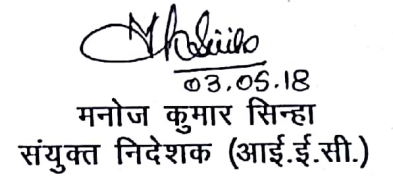 03.05.18
मनोज कुमार सिन्हा
संयुक्त निदेशक (आई.ई.सी.)